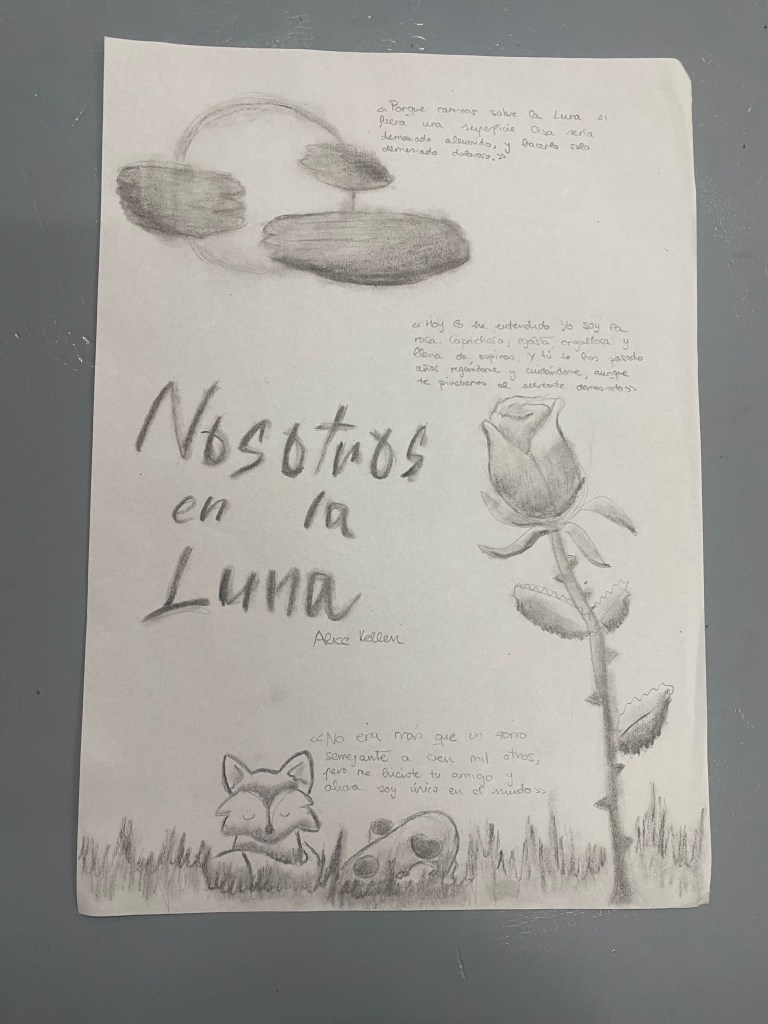 «Porque caminar sobre la Luna si
fuera una superficie lisa sería
demasiado aburrido, y hacerlo solo
demasiado doloroso.»
«Hoy lo he entendido Yo soy la
rosa. Caprichosa, egoísta, orgullosa y
llena de espinas. Y tú te has pasado
años regándome y cuidándome, aunque
te pincharas al acercarte demasiado»
Nosotros
en la
Luna
Alice Kellen
«No era más que un zorro
semejante a cien mil otros,
pero me hiciste tu amigo y
ahora soy único en el mundo»